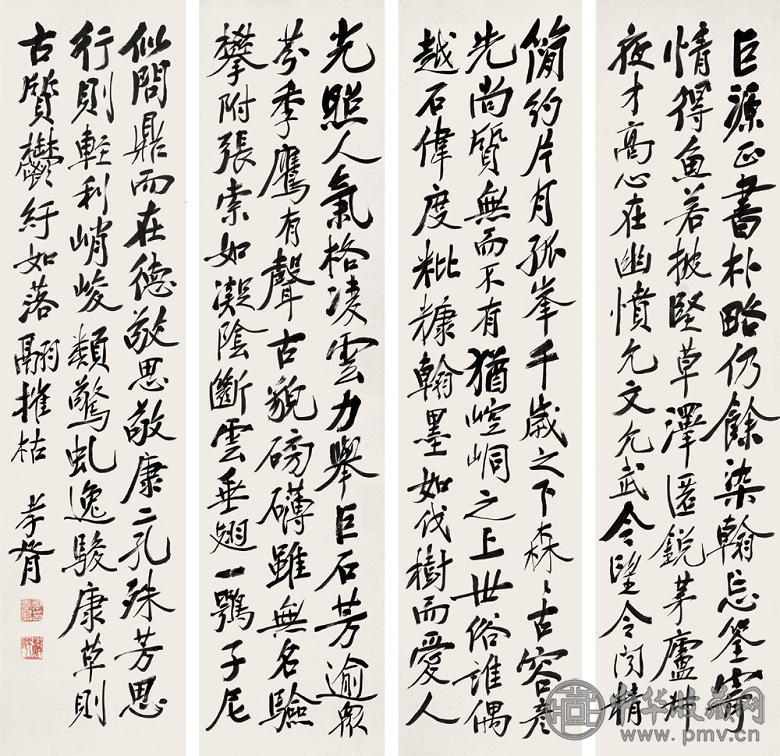 巨源正書朴略仍餘染翰忘筌寄
情得魚若披堅草澤匿銳茅廬叔
夜才高心在幽憤允文允武令望令問精
簡約片月孤峯千歲之下森〻古容彥
先尚質無而不有猶崆峒之上世俗誰偶
越石偉度粃糠翰墨如伐樹而愛人
光照人氣格凌雲力舉巨石芳逾眾
芬季鷹有聲古貌磅礴雖無名驗
攀附張索如凝陰斷雲垂翅一鶚子尼
似問鼎而在德敬思敬康二孔殊芳思
行則輕利峭峻類驚虬逸駿康草則
古質鬱紆如落翮摧枯 孝胥
中华收藏网
www.pmv.cn